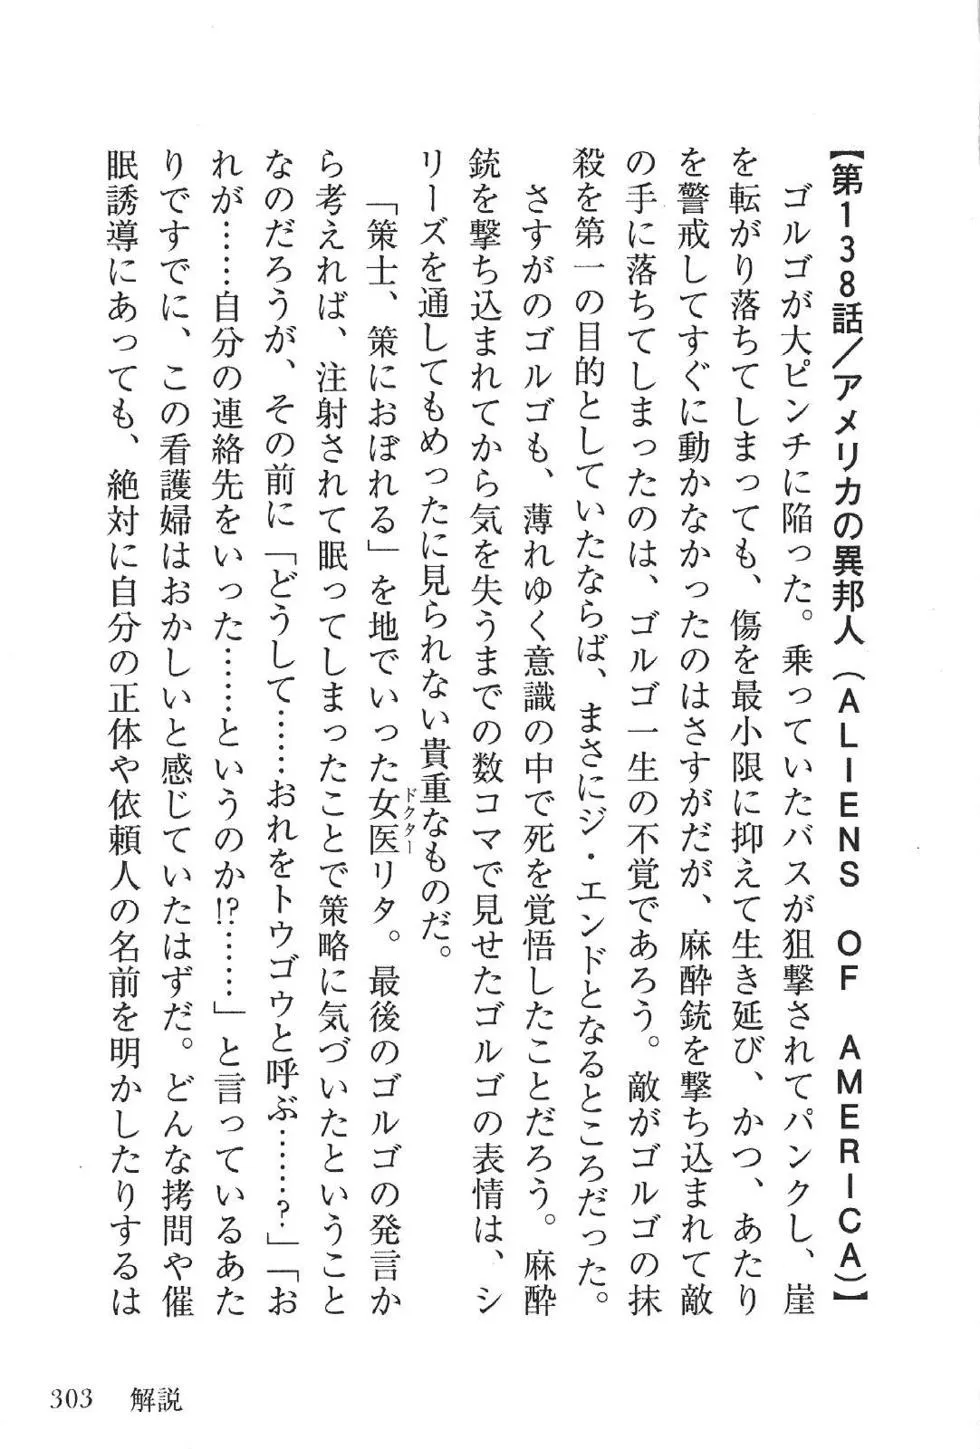 【第138話／アメリカの異邦人（ALIENS OF AMERICA）】
ゴルゴが大ピンチに陥った。乗っていたバスが狙撃されてパンクし、崖
を転がり落ちてしまっても、傷を最小限に抑えて生き延び、かつ、あたり
を警戒してすぐに動かなかったのはさすがだが、麻酔銃を撃ち込まれて敵
の手に落ちてしまったのは、ゴルゴ一生の不覚であろう。敵がゴルゴの抹
殺を第一の目的としていたならば、まさにジ・エンドとなるところだった。
さすがのゴルゴも、薄れゆく意識の中で死を覚悟したことだろう。麻酔
銃を撃ち込まれてから気を失うまでの数コマで見せたゴルゴの表情は、シ
リーズを通してもめったに見られない貴重なものだ。
「策士、策におぼれる」を地でいった女医ドクターリタ。最後のゴルゴの発言か
ら考えれば、注射されて眠ってしまったことで策略に気づいたということ
なのだろうが、その前に「どうして……おれをトウゴゥと呼ぶ……？」「お
れが……自分の連絡先をいった……というのか!?……」と言っているあた
りですでに、この看護婦はおかしいと感じていたはずだ。どんな拷問や催
眠誘導にあっても、絶対に自分の正体や依頼人の名前を明かしたりするは
303　解説